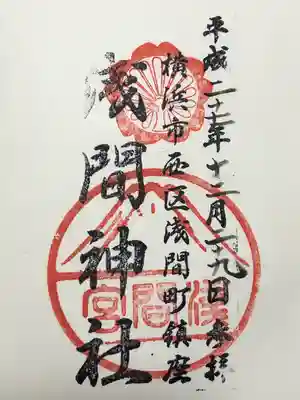 平成二十一年十二月二十九日参拝
横浜市西区浅間町鎮座
浅間神社
浅間宮